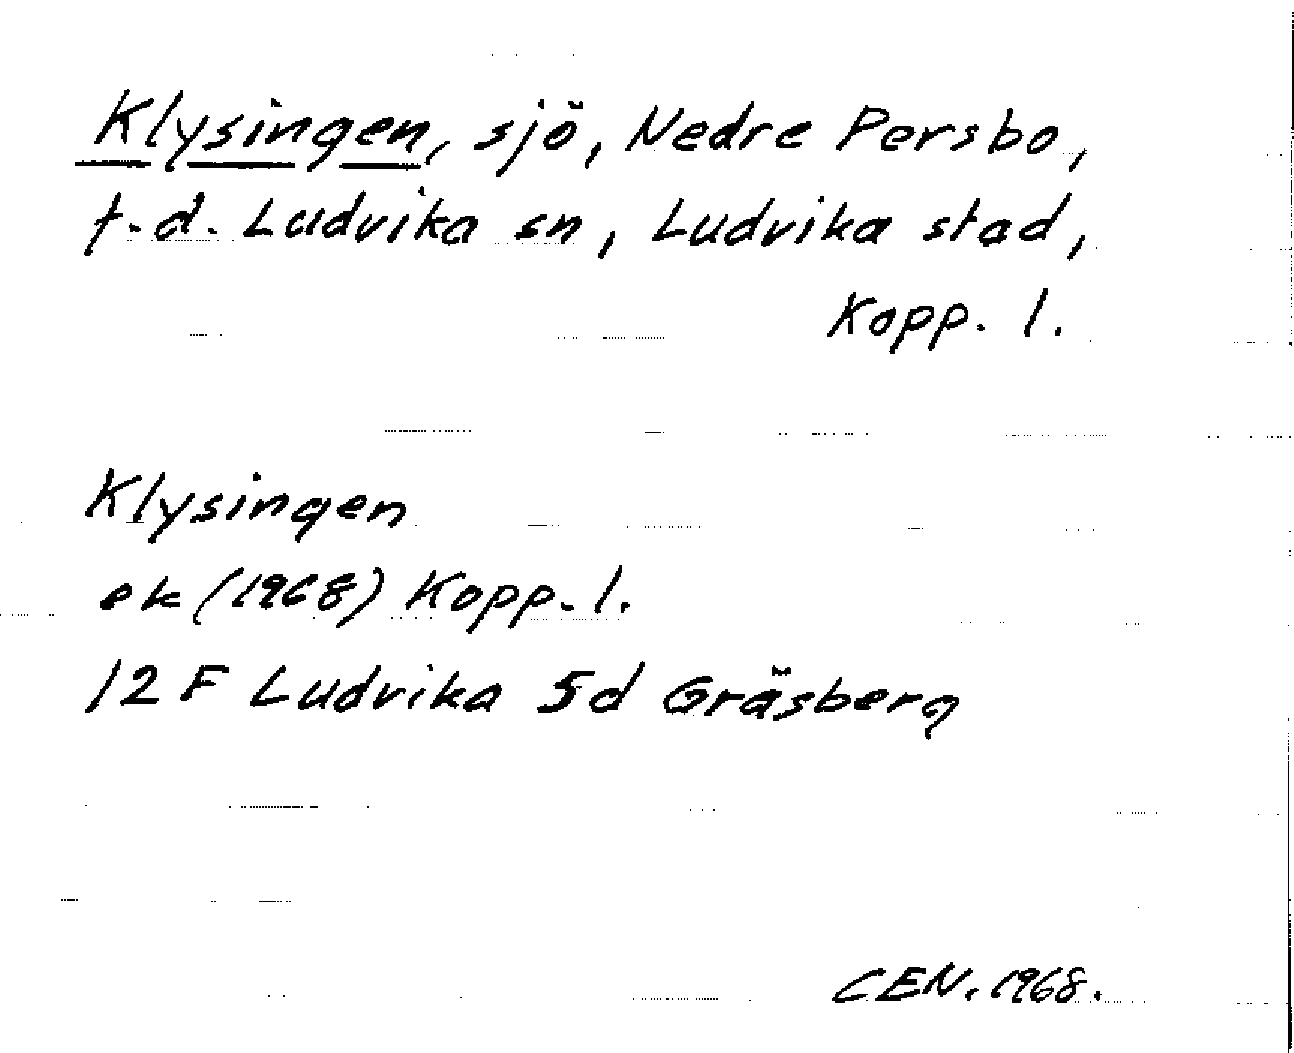 Klysingen, sjö, Nedre Persbo,
f.d. Ludvika sn, Ludvika stad,
Kopp. l.
Klysingen
ek (1968) Kopp. l.
12 F Ludvika 5d Gräsberg
CEN. 1968.